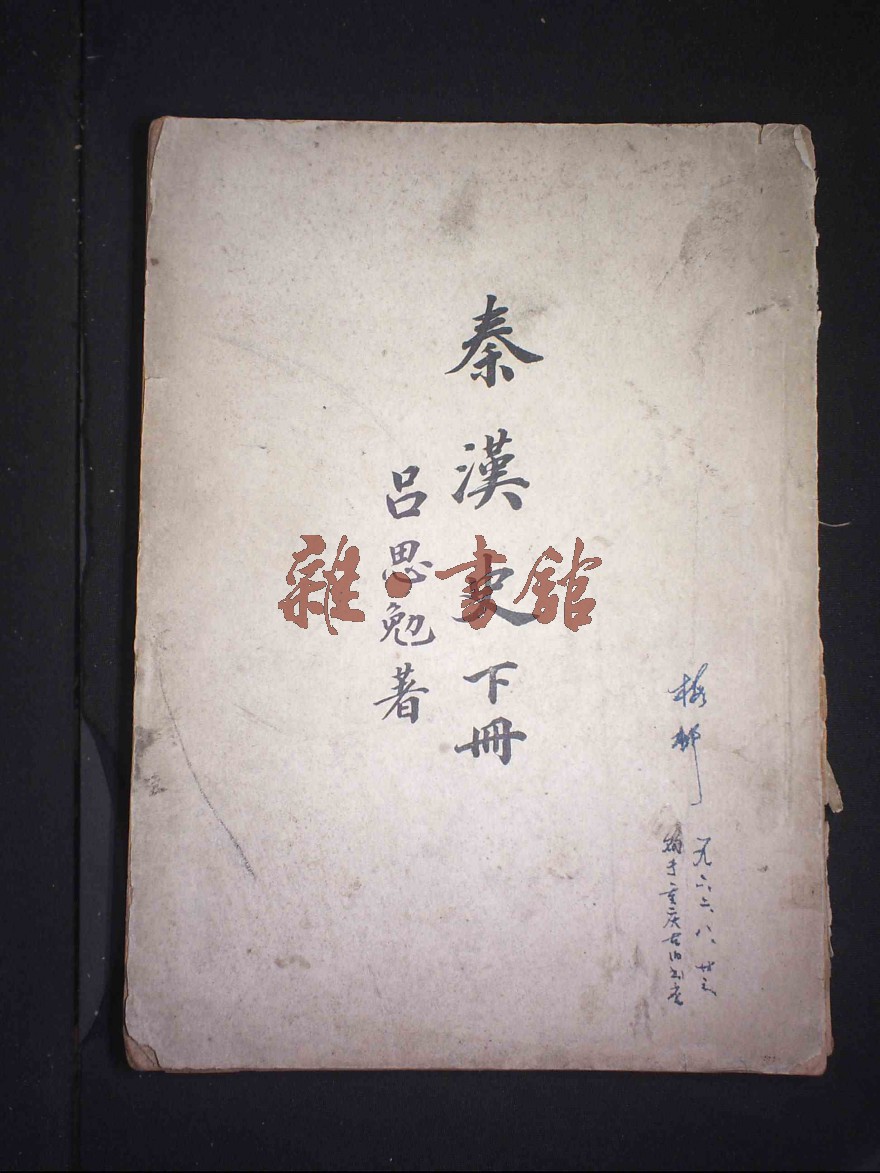 秦漢史下冊
呂思勉著
雜·書館
一九六二、八、廿三
購于重庆古旧书店